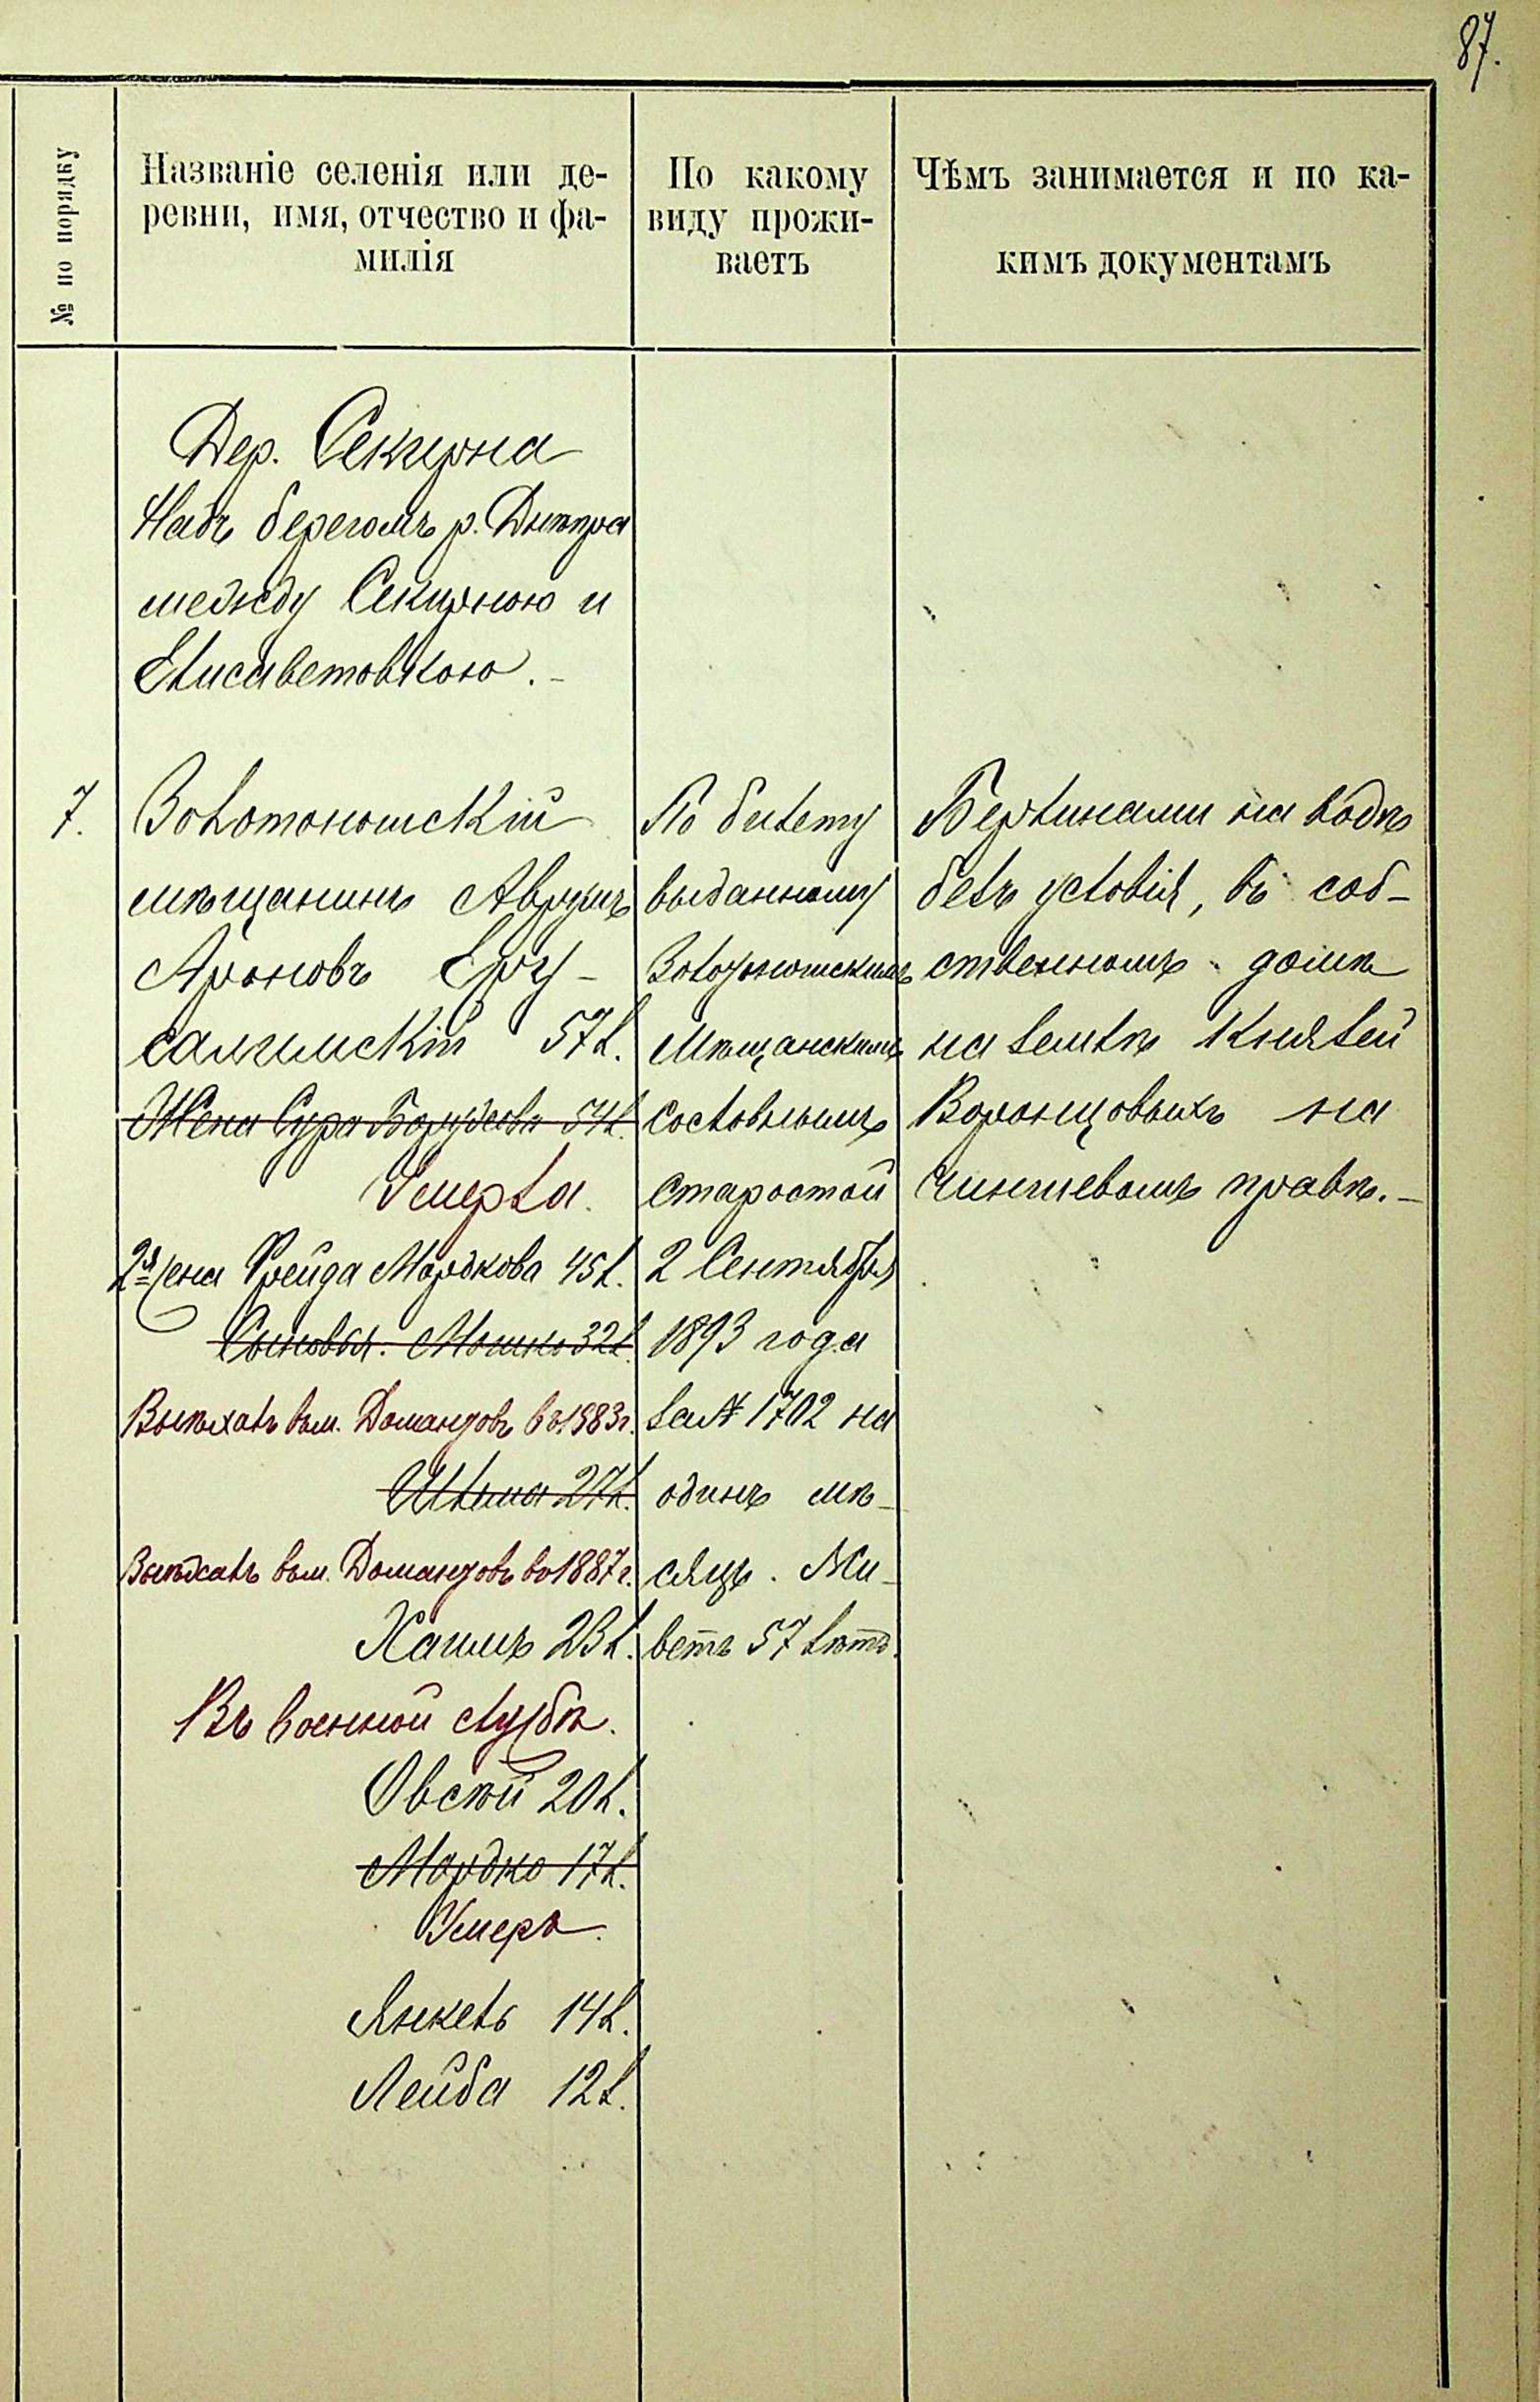 87.
№ по порядку
Названіе селенія или де-
ревни, имя, отчество и фа-
милія
По какому
виду прожи-
ваетъ
Чѣмъ занимается и по ка-
кимъ документамъ
Дер. Секирна
Надъ берегомъ р. Днѣпра
между Секирною и
Елисаветовкою.-
7.
Золотоношскій
мѣщанинъ Аврумъ
Ароновъ Еру-
салимскій 57 л.
Жена Сура Борухова 54 л.
Умерла.
2я жена Фрейда Мордкова 45 л.
Сыновья: Мошко 32 л.
Выѣхалъ въ м. Домантовъ въ 1883 г.
Шлема 27 л.
Выѣхалъ въ м. Домантовъ въ 1887 г.
Хаимъ 23 л.
Въ военной службѣ.
Овсѣй 20 л.
Мордко 17 л.
Умеръ.
Янкель 14 л.
Лейба 12 л.
По билету
выданному
Золотоношскимъ
Мѣщанскимъ
сословнымъ
старостой
2 Сентября
1893 года
за № 1702 на
одинъ мѣ-
сяцъ. Жи-
ветъ 57 лѣтъ.
Берлинами на водѣ
безъ условія, въ соб-
ственномъ домѣ
на землѣ Князей
Воронцовыхъ на
чиншевомъ правѣ.-